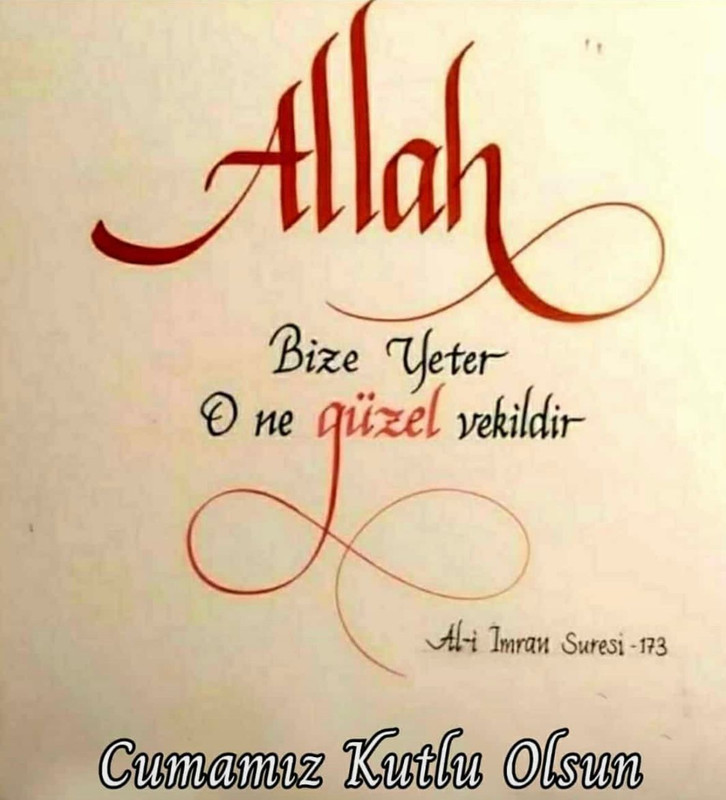 Allah
Bize Yeter
O ne güzel vekildir
Al-i İmran Suresi - 173
Cumamız Kutlu Olsun